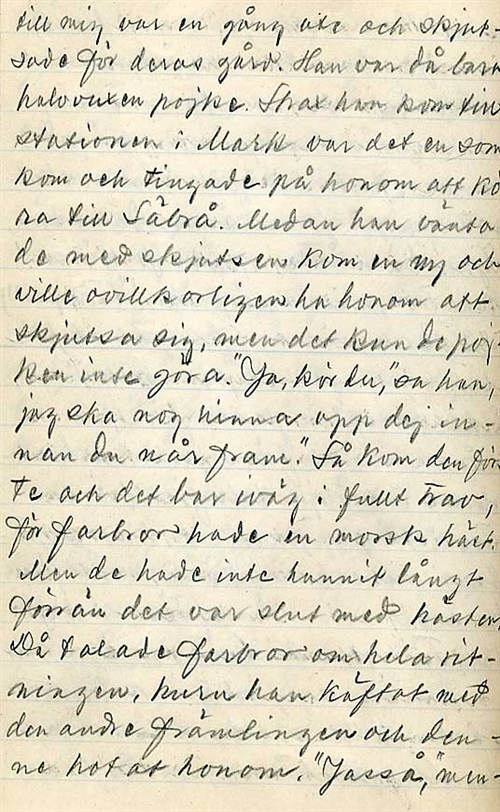 till mig var en gång ute och skjut-
sade för deras gård. Han var då bara
halvvuxen pojke. Strax han kom till
stationen i Mark var det en som
kom och tingade på honom att kö
ra till Säbrå. Medan han vänta
de med skjutsen kom en ny och
ville ovillkorligen ha honom att
skjutsa sig, men det kunde poj-
ken inte göra. "Ja, kör du," sa han,
jag ska nog hinna upp dej in-
nan du når fram." Så kom den för
te och det bar iväg i fullt trav,
för farbror hade en morsk häst.
Men de hade inte hunnit långt
förrän det var slut med hästen,
Då talade farbror om hela rit-
ningen, huru han käftat med
den andre främlingen och den-
ne hotat honom. "Jasså," men-